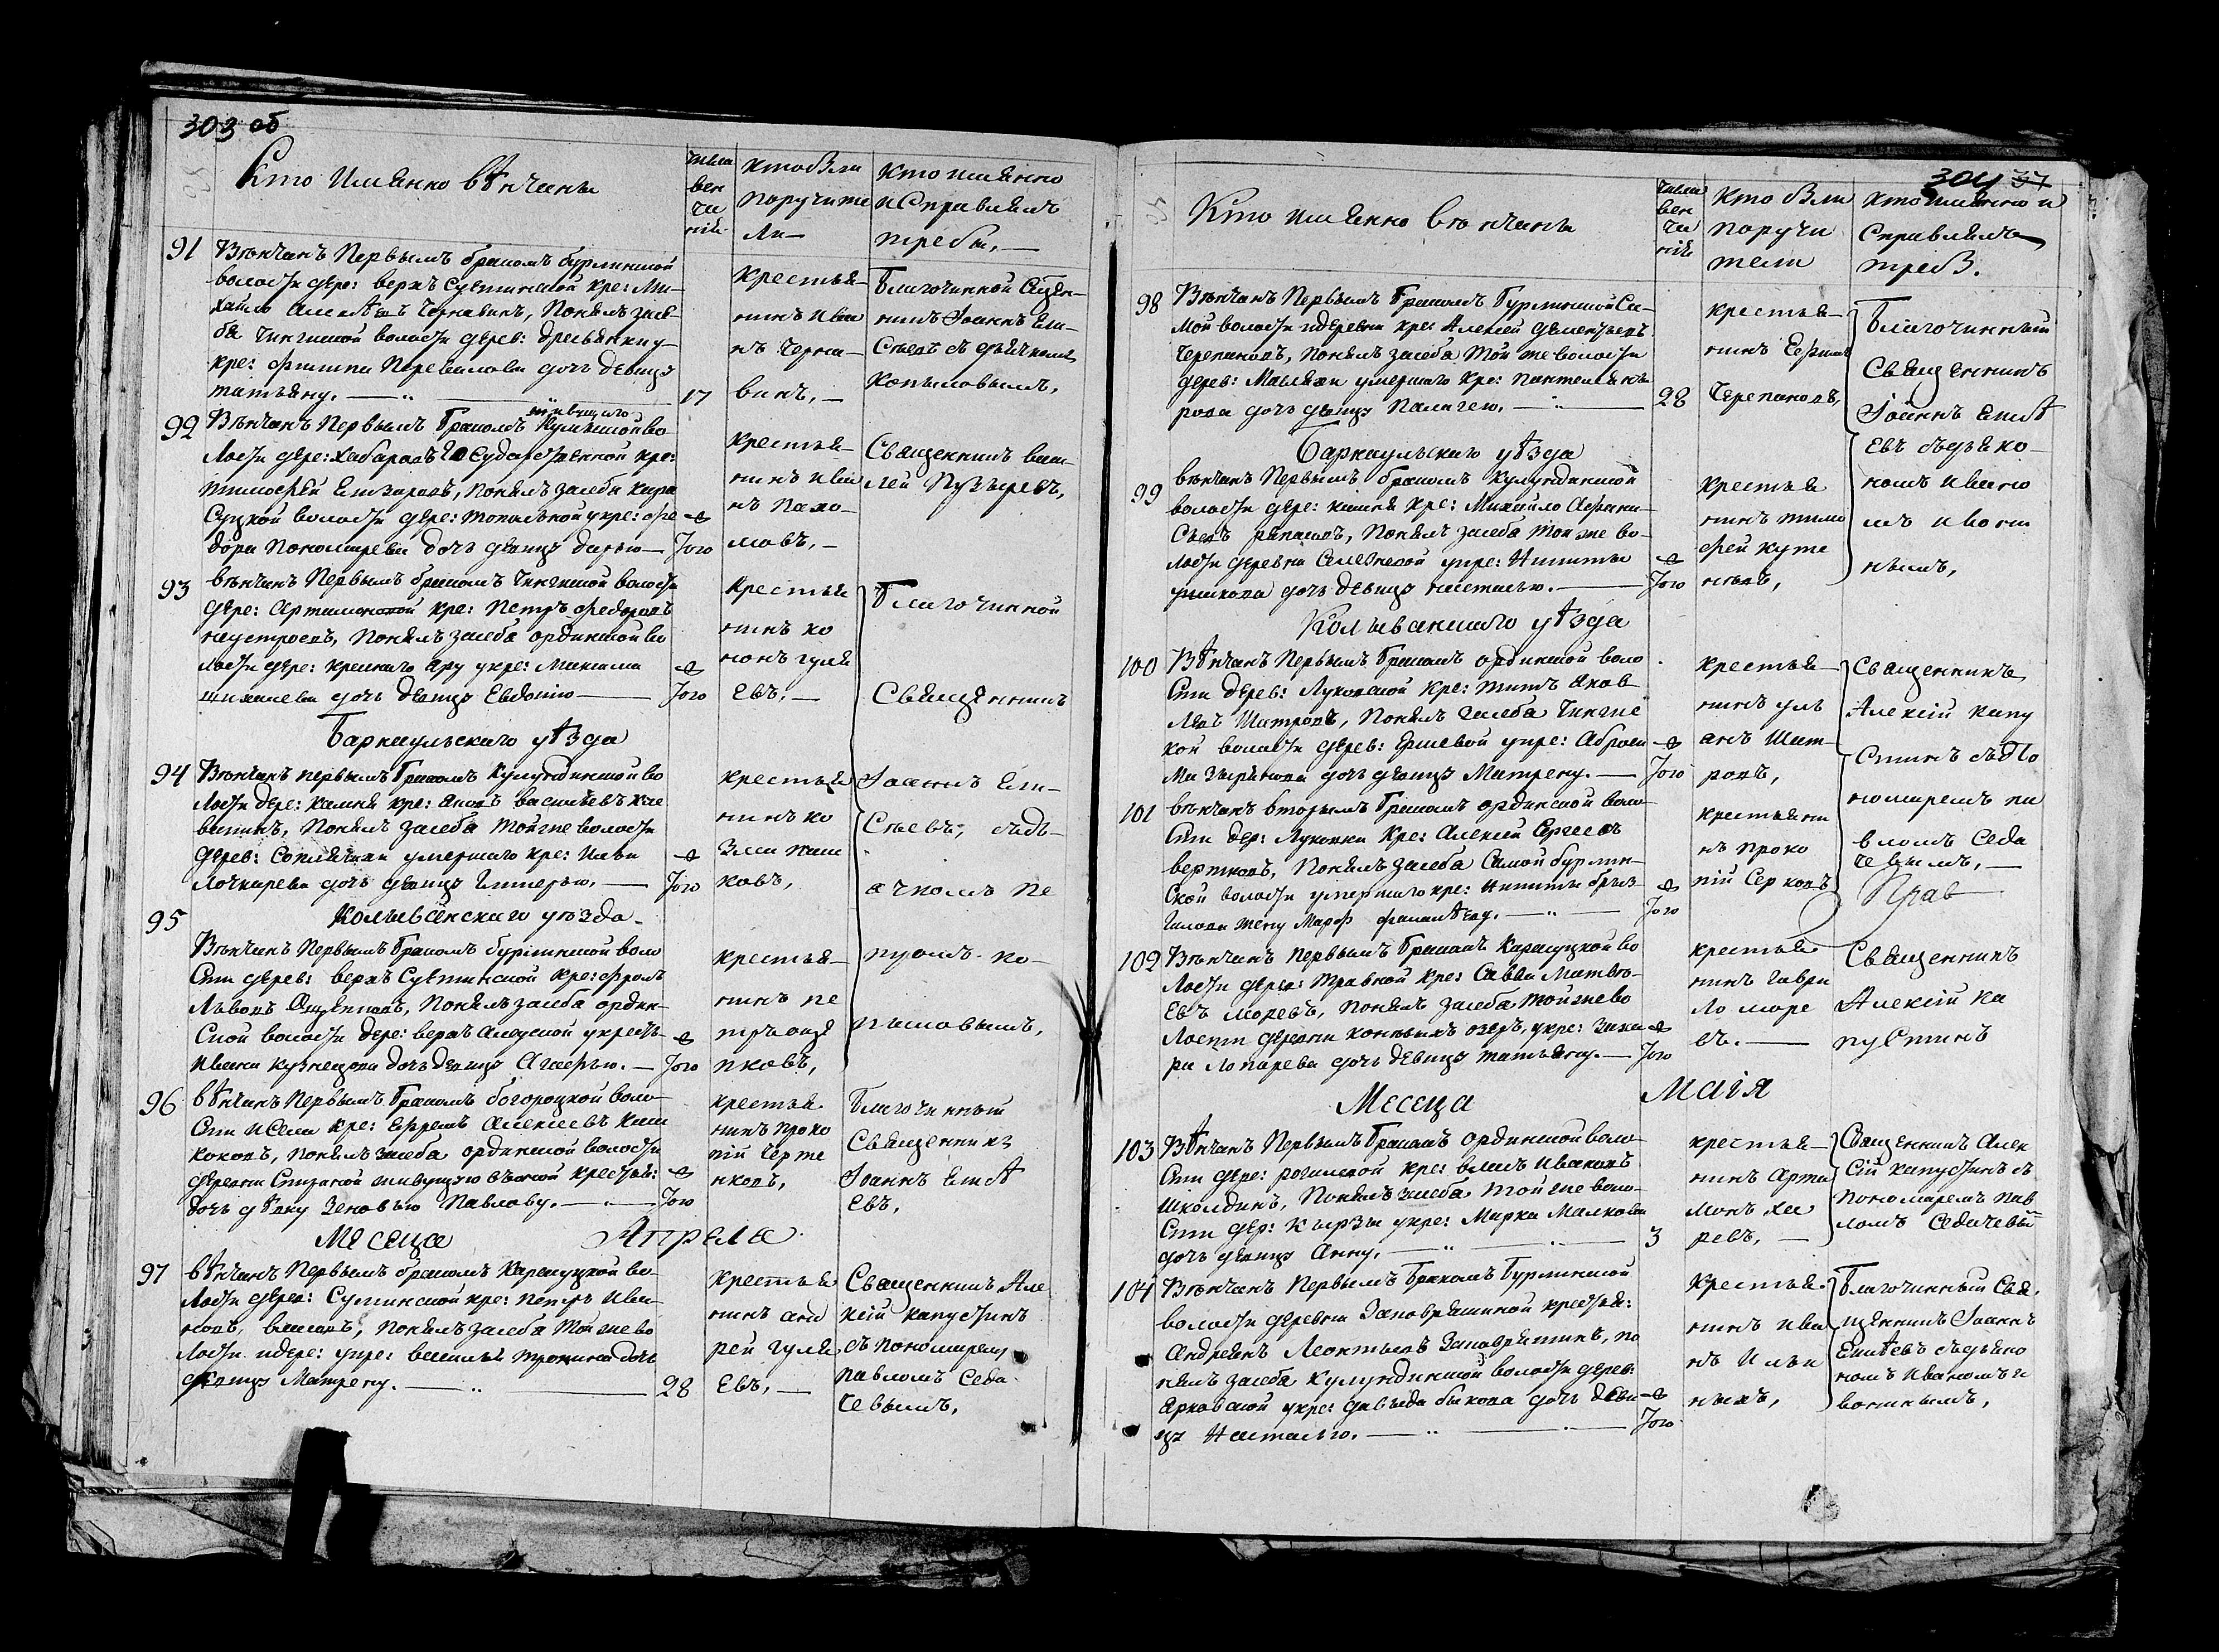 303 об
Кто Именно вѣнчаны
числа вен ча ній
кто были поручите ли —
кто именно исправлялъ требы, —
91 Вѣнчанъ Первымъ бракомъ бурлинской
волости дере: верхъ Суетинской кре: Ми-
хайло Алексѣевъ Чернавинъ, Понялъ засе-
бя Чингиской волости дерев: дресвянки у
кре: филипа Перевалова дочь девицу
татьяну. — 17
крестья-
нинъ ива
нъ черна-
винъ, —
Благочинной Свещен-
никъ Іоаннъ Ели-
Сѣевъ съ дьячкомъ
Копыловымъ,
92 Вѣнчанъ Первымъ бракомъ Кулынской во-
лости дере: Хабаровъ Государственной кре:
тимофей Елизаровъ, Понялъ засебя кара
Суцкой волости дере: топольной укре: фе
дора Пономарева дочь девицу дарью — Того
крестья-
нинъ ива
нъ пахо-
мовъ, —
Священникъ васи-
лей Пузыревъ,
93 вѣнчанъ Первымъ бракомъ Чингиской волости
дере: Артамоновой кре: Петръ федоровъ
неустроевъ, Понялъ засебя ординской во
лости дере: Максима
дочь девицу Евдокію — Того
крестья
нинъ ко
нонъ гуля
евъ, —
Благочинной
Священникъ
Іоаннъ Ели-
Сѣевъ, съдь-
ячкомъ Пе
тромъ ко-
пыловымъ,
Барнаульскаго уѣзда
94 Вѣнчанъ первымъ бракомъ Кулундинской во
лости дере: Камня кре: Яковъ васильевъ
Понялъ засебя тойже волости
дерев: умершаго кре: Ильи
Лочкарева дочь девицу Гликерью. — Того
крестья
нинъ ко
зма паш
ковъ,
Колыванскаго уѣзда
95 Вѣнчанъ Первымъ бракомъ бурлинской воло
сти дерев: верхъ Суетинской кре: фролъ
Львовъ Ощепковъ, Понялъ засебя ордин-
Ской волости дере: верхъ Алеуской укресть
ивана кузнецова дочь девицу Агафью. — Того
крестья-
нинъ пе
тръ още
пковъ,
96 вѣнчанъ Первымъ бракомъ богороцкой воло-
сти исела кре: Ефремъ Алексеевъ каш
коковъ, Понялъ засебя ординской волости
деревни Спириной живущаго въоной крестья:
дочь дѣвку Зеновью Павлову. — Того
крестья
нинъ проко
пій черте
нковъ,
Благочинный
Священникъ
Іоаннъ Елисѣ
евъ,
Месеца Апреля
97 вѣнчанъ Первымъ бракомъ Карасуцкой во-
лости дерев: Сузминской кре: Петръ ива-
новъ, Понялъ засебя тойже во
лости идере: укре: василья тронина дочь
девицу Матрену. — 28
крестья
нинъ анд
рей гуля
евъ, —
Священникъ Але
ксій капустинъ
съ пономаремъ
павломъ Седа-
чевымъ,
304 37
Кто именно вѣнчаны
числа вен ча ній
кто были поручи тели
кто именно и Справлялъ треб.
98 Вѣнчанъ Первымъ бракомъ бурлинской Са-
мой волости идеревни кре: Алексей дементьевъ
Черепановъ, Понялъ засебя той же волости
дерев: Мышлани умершаго кре:
рова дочь девицу Палагею. — 28
крестья-
нинъ Ефимъ
Черепановъ,
Благочинный
Священникъ
Іоаннъ Елисѣ
евъ съдьяко-
номъ ивано
мъ ивоти
нымъ,
Барнаульскаго уѣзда
99 вѣнчанъ Первымъ бракомъ Кулундинской
волости дере: камня кре: Михайло Афана-
Сьевъ Понялъ засебя тойже во-
лости деревни Селезневой укре: Никиты
ушакова дочь девицу настасью. — Того
крестья
нинъ тимо
фей куте
новъ,
Колыванскаго уѣзда
100 Вѣнчанъ Первымъ бракомъ ординской воло
сти дерев: Луковской кре: титъ Яков-
левъ Шатровъ, Понялъ засебя чингис
кой волости дерев: Ершевой укре: Аброси
ма Зырянова дочь девицу Матрену. — Того
крестья-
нинъ уль
анъ Шат-
ровъ,
Священникъ
Алексій капу
Стинъ съПо
номаремъ па
вломъ Седа
чевымъ, —
101 вѣнчанъ вторымъ бракомъ ординской воло-
сти дер: Луковки Кре: Алексей Сергеевъ
вертковъ, Понялъ засебя Самой бурлин-
Ской волости умершаго кре: никиты
жену Марфу — Того
крестьяни
нъ проко
пій Серковъ
Прав
102 Вѣнчанъ Первымъ бракомъ Карасуцкой во
лости дере: травной Кре: Савва Матвѣ-
евъ моревъ, Понялъ засебя тойже во
лости деревни коневыхъ озеръ, укре: Заха
ра Лопарева дочь девицу татьяну. — Того
крестья
нинъ гаври
ло море
въ. —
Священникъ
Алексій ка
пустинъ
Месеца Маія
103 Вѣнчанъ Первымъ бракомъ ординской воло-
сти дере: рогалевой кре: власъ ивановъ
Школдинъ, Понялъ засебя тойже воло-
сти дер: Кирзы укре: Марка Малкова
дочь девицу Анну, — 3
крестья-
нинъ Арта
монъ ха
ревъ, —
Священникъ Алек
сій капустинъ съ
пономаремъ пав
ломъ Седачевы
104 Вѣнчанъ Первымъ бракомъ бурлинской
волости деревни крестья:
Андреянъ Леонтьевъ по
нялъ засебя Кулундинской волости дерев:
Ярковской укре: давыда быкова дочь деви
цу Наталью. — Того
крестья-
нинъ ива
нъ Ильи
ныхъ,
Благочинный Свя-
щенникъ Іоаннъ
Елисѣевъ съдьяко
номъ иваномъ и
вотинымъ,